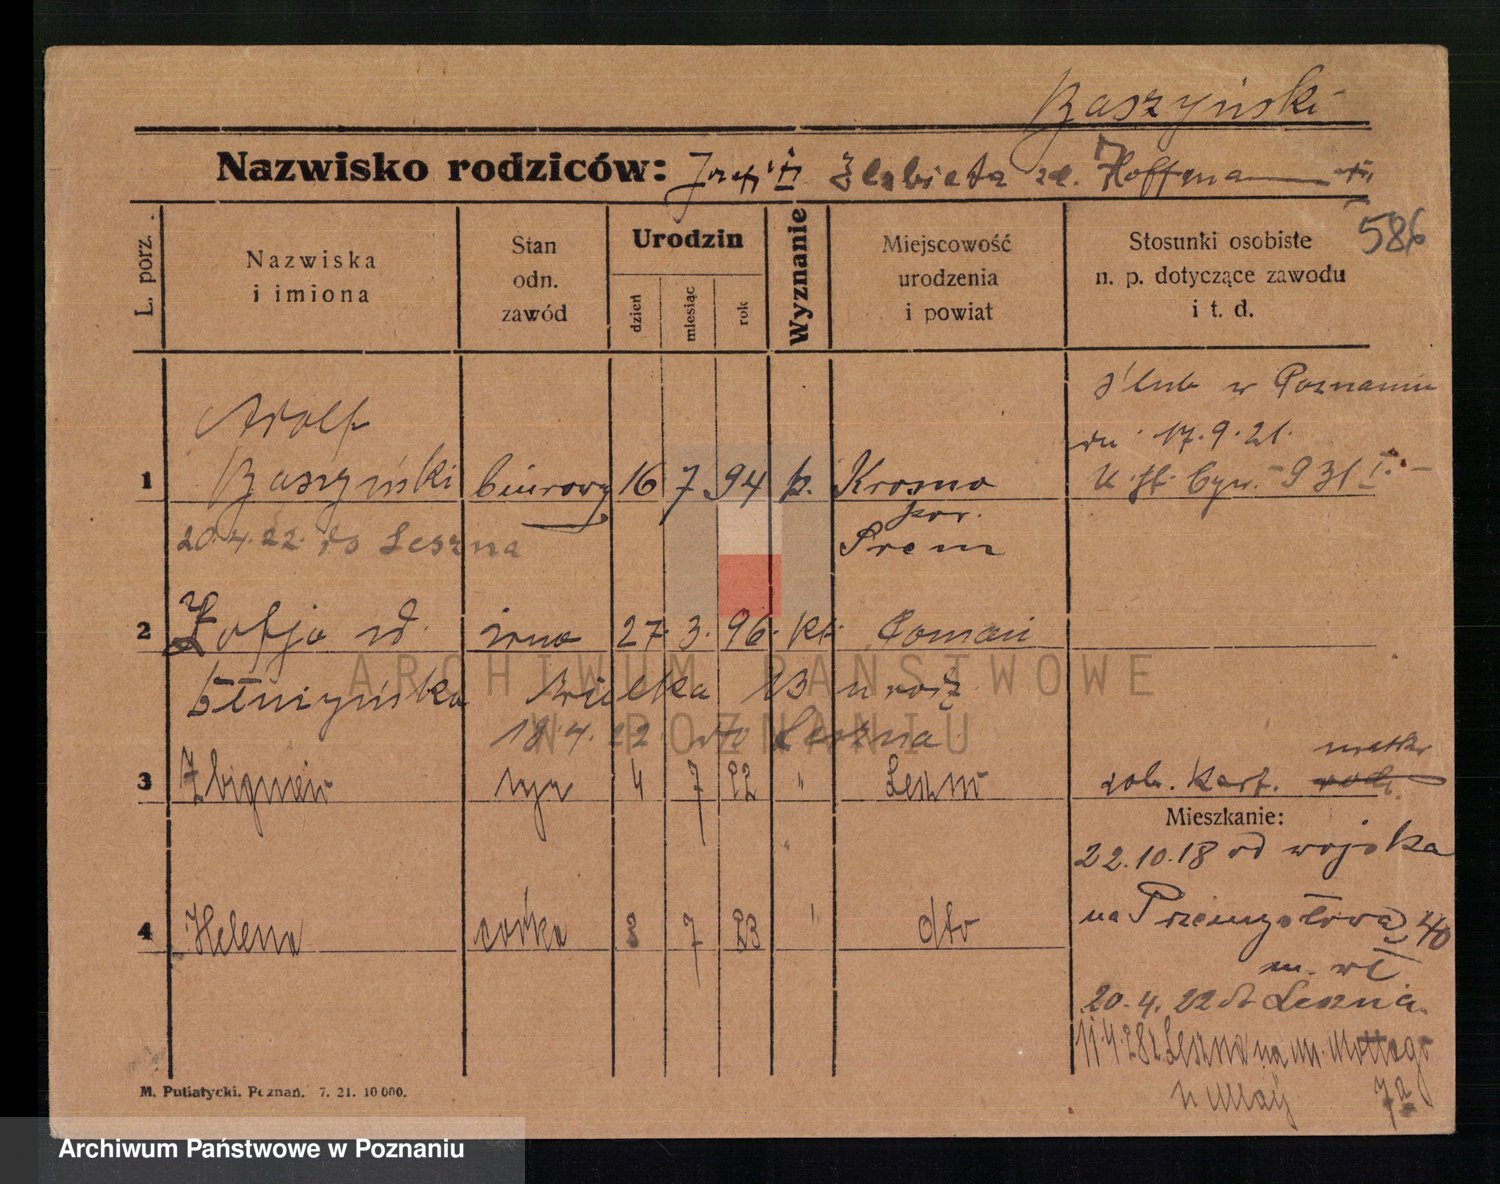 Baszyński
Nazwisko rodziców: Józef i Elżbieta zd. Hoffmann
586
L. porz.
Nazwiska
i imiona
Stan
odn.
zawód
Urodzin
dzień
miesiąc
rok
Wyznanie
Miejscowość
urodzenia
i powiat
Stosunki osobiste
n. p. dotyczące zawodu
i t. d.
Adolf
ślub w Poznaniu
dn. 17.9.21.
1 Baszyński biurowy 16 7 94 k. Krosno
931 I.
20.4.22. do Leszna
pow.
Śrem
2 Zofja zd. żona 27. 3. 96. kt. Poznań
Wielka 13 urodz
18.4.22 do Leszna
matki
3 Zbigniew syn 4 7 22 " Leszno
zob. kart. rodz.
Mieszkanie:
22.10.18 od wojska
na Przemysłowa 40
4 Helena córka 3 7 23 " dto
m. wł
20.4.22 do Leszna.
11.4.28 z Leszno na un. Mottego
72
M. Putiatycki. Poznań. 7. 21. 10 000.
ARCHIWUM PAŃSTWOWE
W POZNANIU
Archiwum Państwowe w Poznaniu